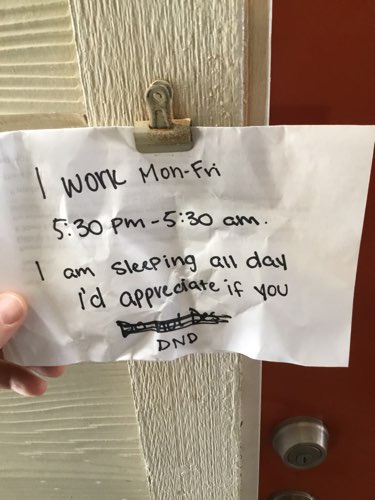 I work Mon-Fri
5:30 pm - 5:30 am.
I am sleeping all day
i'd appreciate if you
DND